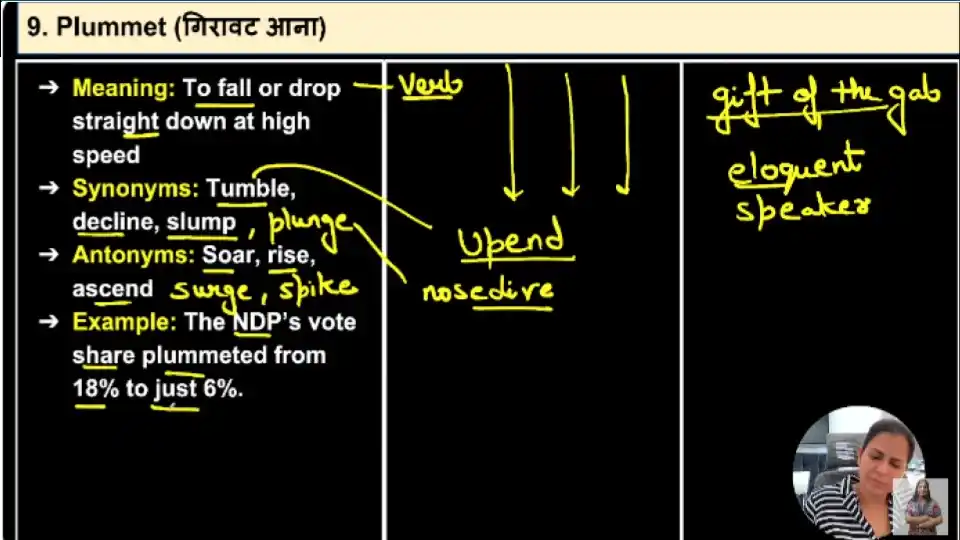 9. Plummet (गिरावट आना)
➔ Meaning: To fall or drop
straight down at high
speed
➔ Synonyms: Tumble,
decline, slump, plunge
➔ Antonyms: Soar, rise,
ascend surge, spike
➔ Example: The NDP's vote
share plummeted from
18% to just 6%.
Verb
Upend
nosedive
gift of the gab
eloquent
speaker